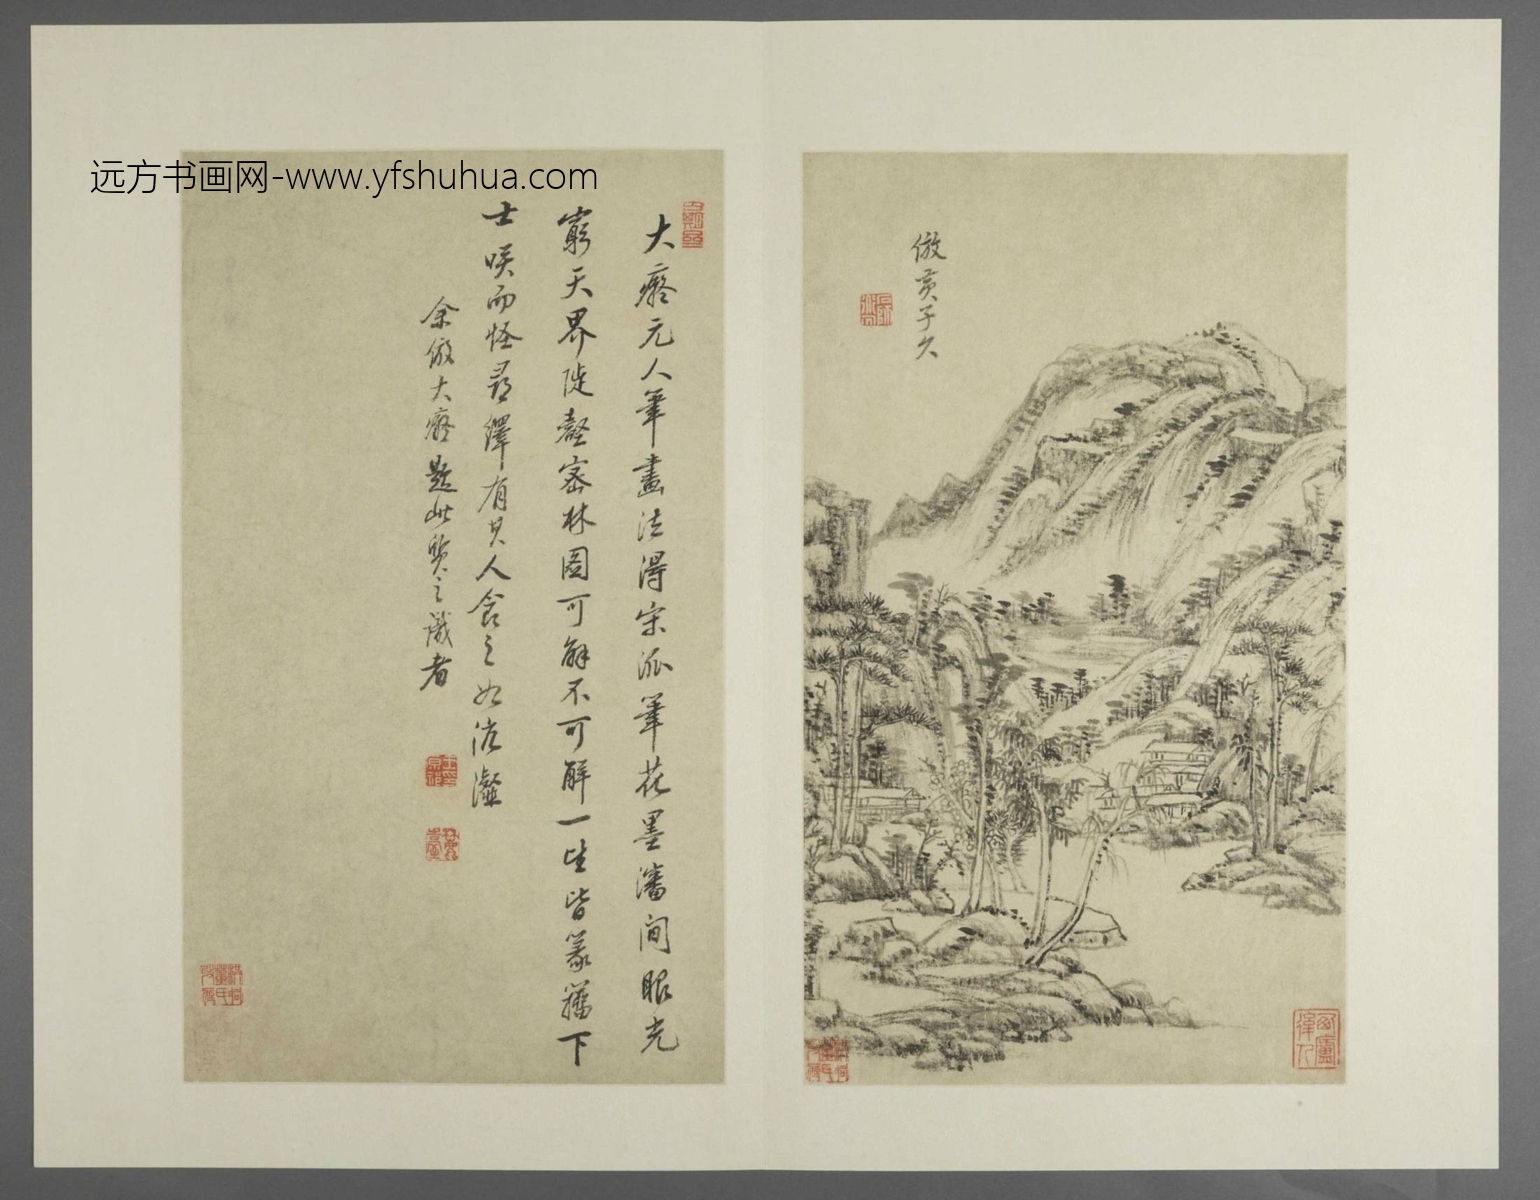 远方书画网-www.yfshuhua.com
倣黃子久
西廬後人
大癡元人筆畫法得宋派筆花墨瀋間眼光
窮天界陡壑密林圖可解不可解一望皆篆籀下
士咲而怪尋繹有其人食之如沆瀣
余倣大癡題此質之識者